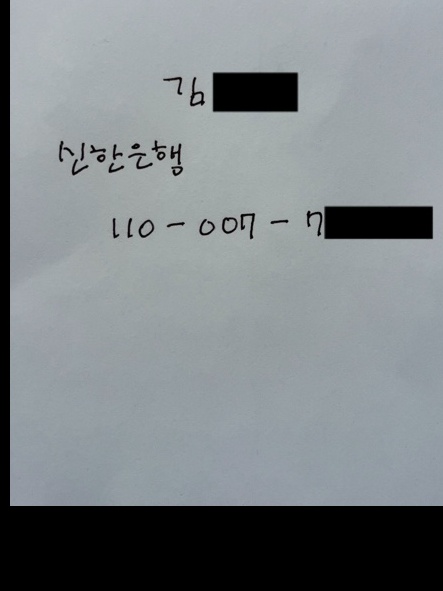 김
신한은행
110 - 007 - 7